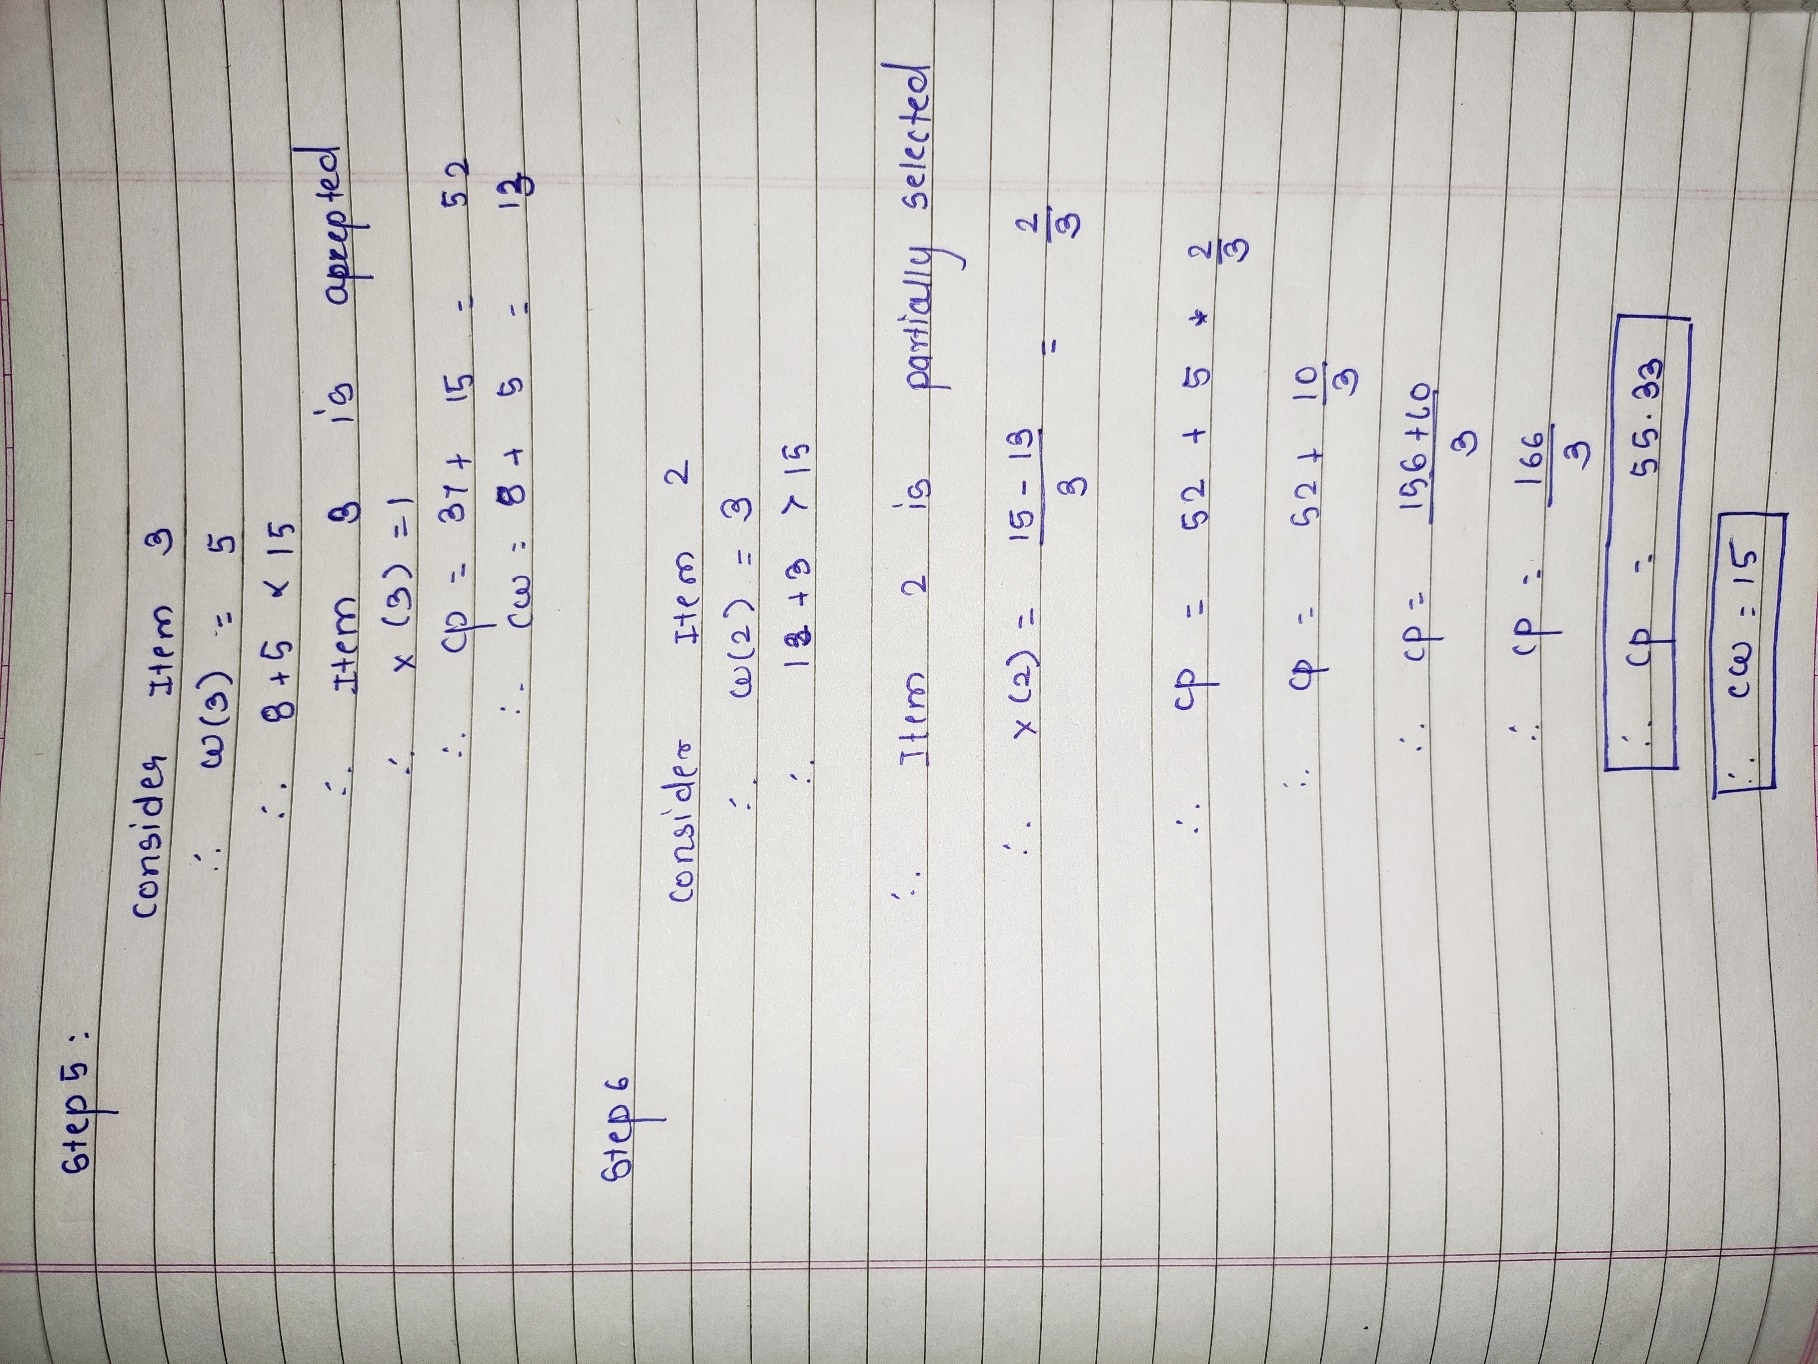 Step 5:
Consider Item 3
∴ w(3) = 5
∴ 8 + 5 < 15
∴ Item 3 is accepted
∴ x(3) = 1
∴ cp = 37 + 15 = 52
∴ cw = 8 + 5 = 13
Step 6
Consider Item 2
∴ w(2) = 3
∴ 13 + 3 > 15
∴ Item 2 is partially selected
∴ x(2) = 15 - 13 / 3 = 2/3
∴ cp = 52 + 5 * 2/3
∴ cp = 52 + 10/3
∴ cp = 156 + 10 / 3
∴ cp = 166/3
∴ cp = 55.33
∴ cw = 15